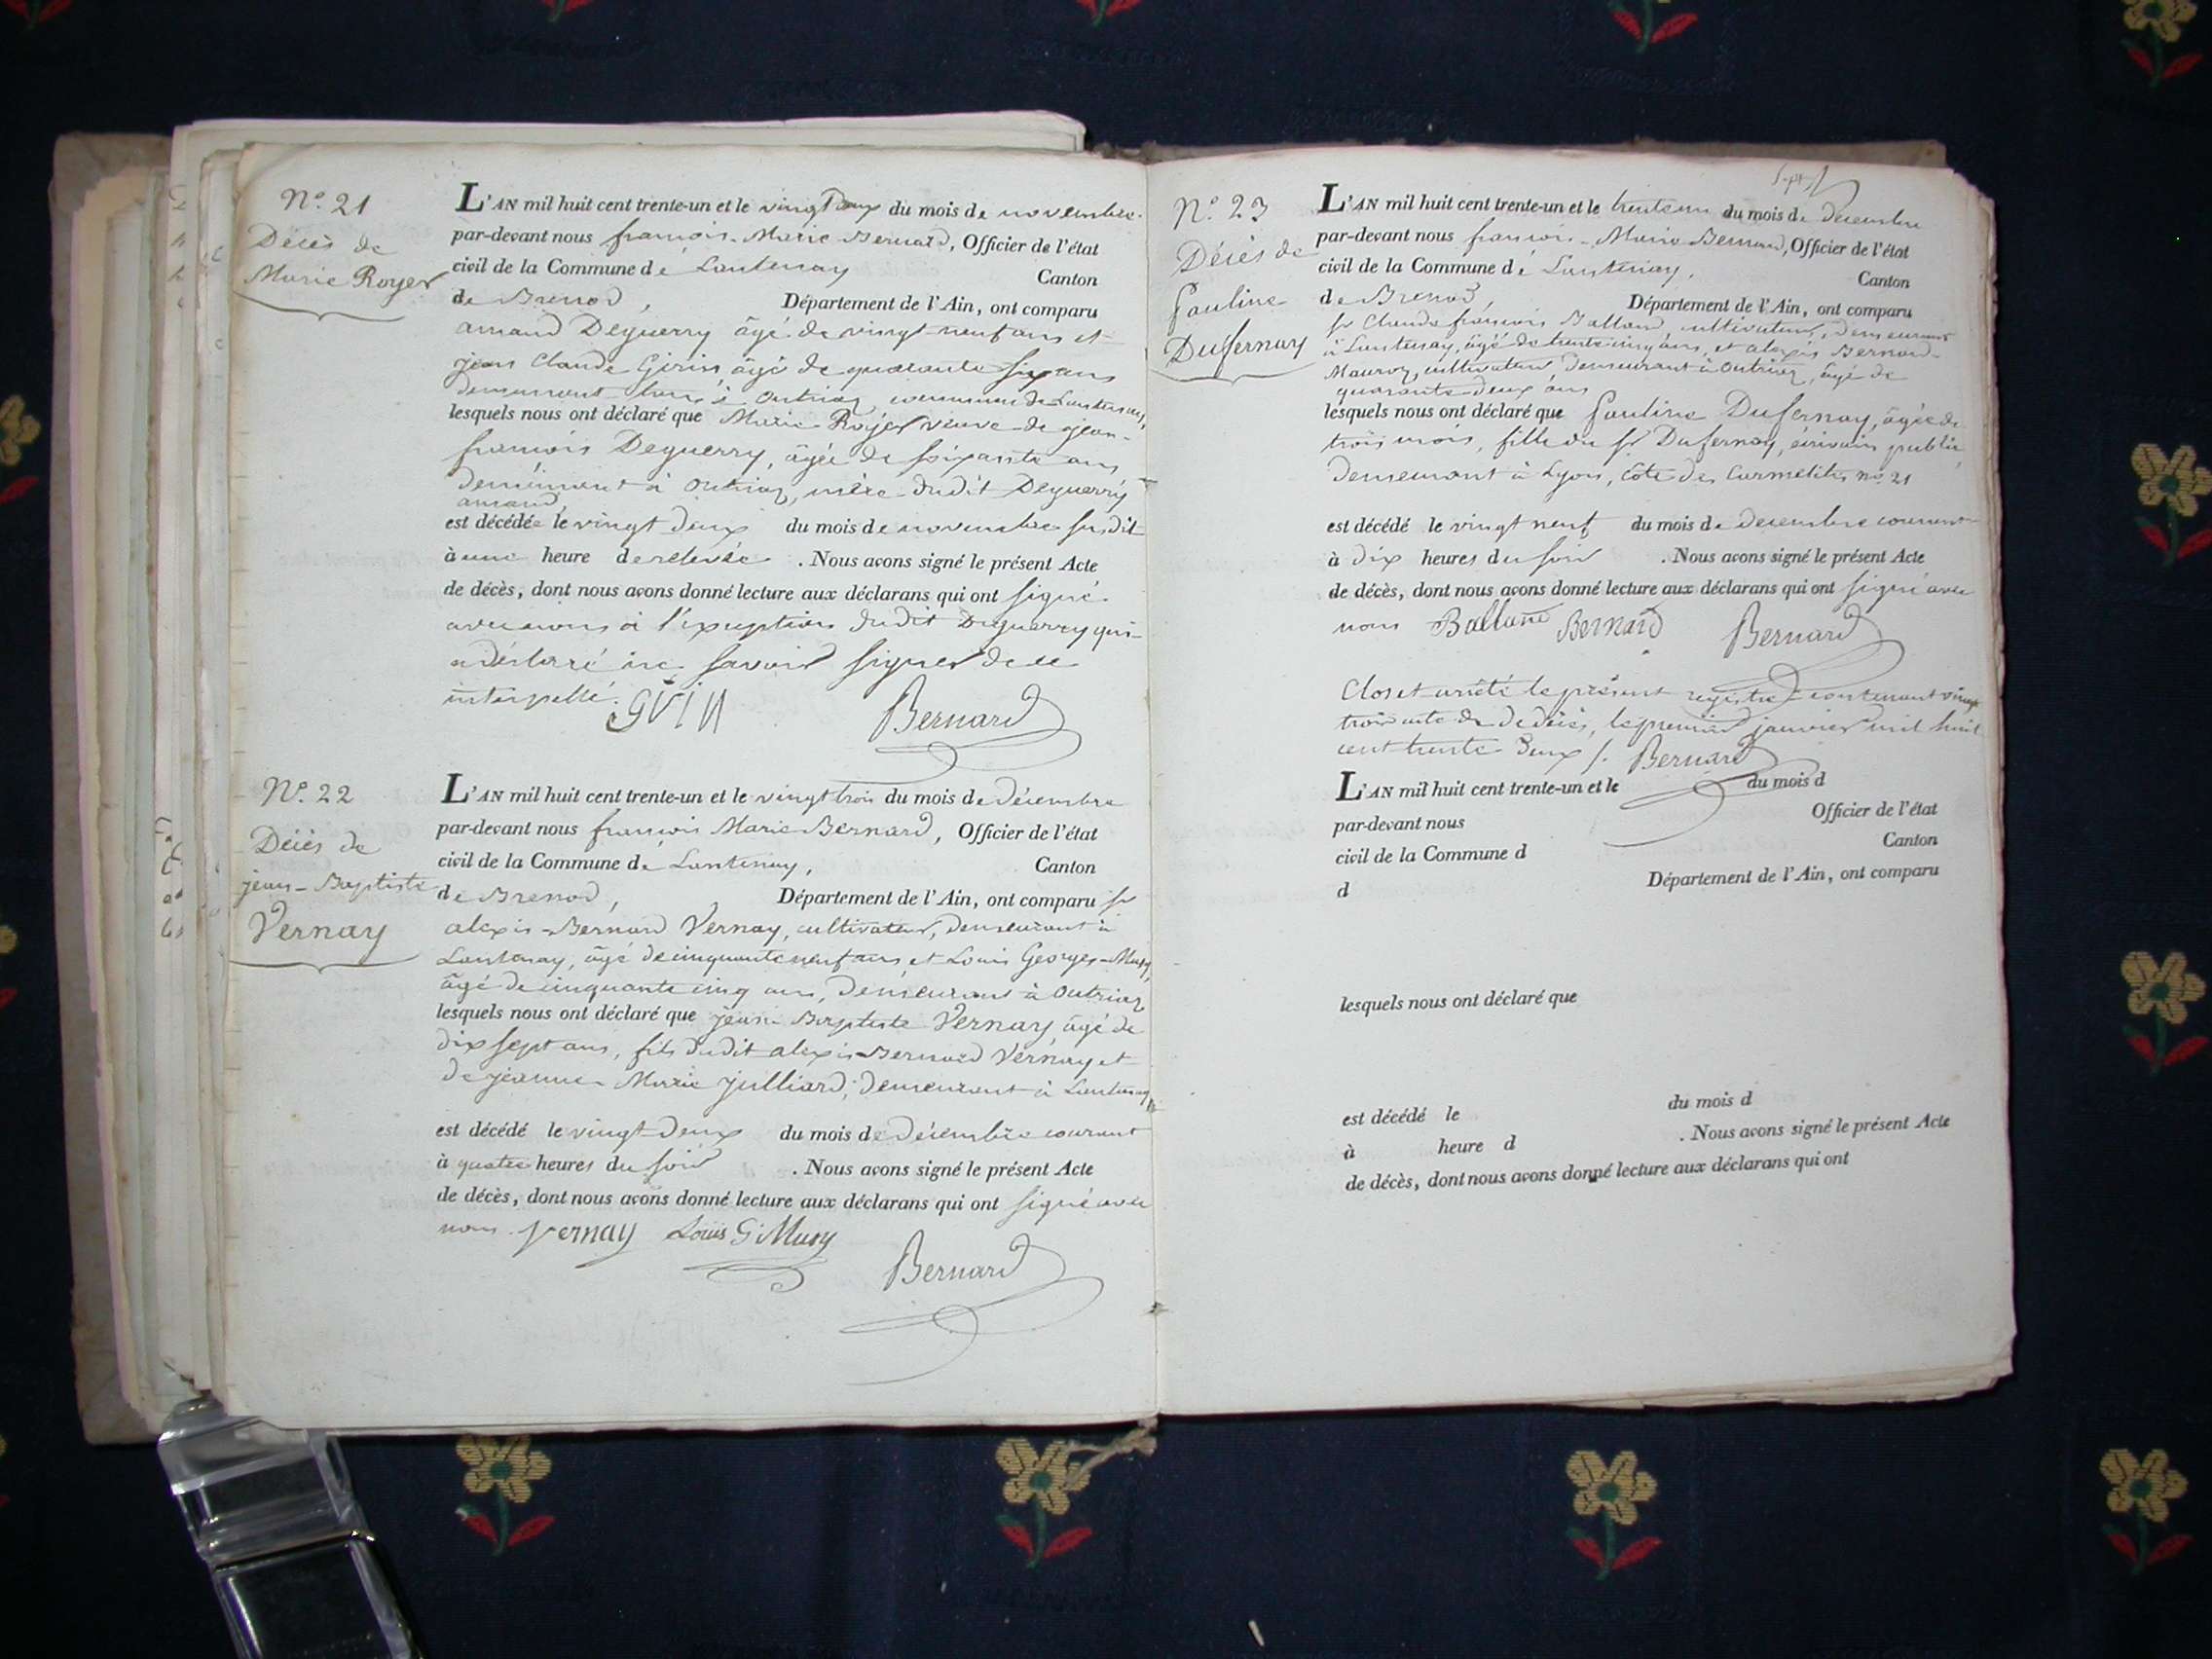 N.º 21
Décès de
Marie Royer
L'AN mil huit cent trente-un et le vingt deux du mois de novembre
par-devant nous françois-Marie Bernard, Officier de l'état
civil de la Commune de Lantenay Canton
de Brenod, Département de l'Ain, ont comparu
amand Deguerry âgé de vingt neuf ans et
jean Claude Girin, âgé de quarante six ans
demeurant tous à outriaz, commune de Lantenay,
lesquels nous ont déclaré que Marie Royer veuve de jean-
françois Deguerry, âgée de soixante ans
demeurant à outriaz, mère dudit Deguerry
amand,
est décédée le vingt deux du mois de novembre susdit
à une heure de relevée . Nous avons signé le présent Acte
de décès, dont nous avons donné lecture aux déclarans qui ont signé
avec nous à l'exception dudit Deguerry qui
a déclaré ne savoir signer de ce
interpellé. Bernard
N.º 22
Décès de
jean-Baptiste
Vernay
L'AN mil huit cent trente-un et le vingt trois du mois de décembre
par-devant nous françois Marie Bernard, Officier de l'état
civil de la Commune de Lantenay, Canton
de Brenod, Département de l'Ain, ont comparu sr
alexis-Bernard Vernay, cultivateur, demeurant à
Lantenay, âgé de cinquante neuf ans, et Louis Georges-Mury,
âgé de cinquante cinq ans, demeurant à outriaz
lesquels nous ont déclaré que jean-Baptiste Vernay, âgé de
dix sept ans, fils dudit alexis-Bernard Vernay et
de jeanne-Marie julliard, demeurant à Lantenay,
est décédé le vingt deux du mois de décembre courant
à quatre heures du soir . Nous avons signé le présent Acte
de décès, dont nous avons donné lecture aux déclarans qui ont signé avec
nous. Vernay Louis G Mury
Bernard
N.º 23
Décès de
Pauline
Dufernay
L'AN mil huit cent trente-un et le trente un du mois de decembre
par-devant nous françois-Marie Bernard, Officier de l'état
civil de la Commune de Lantenay, Canton
de Brenod, Département de l'Ain, ont comparu
sr Claude françois Balland, cultivateur, demeurant
à Lantenay, âgé de trente cinq ans, et alexis Bernard-
cultivateur demeurant à outriaz, âgé de
quarante-deux ans
lesquels nous ont déclaré que Pauline Dufernay, âgée de
trois mois, fille du sr Dufernay, écrivain public,
demeurant à Lyon, côte des Carmelites no. 21
est décédé le vingt neuf du mois de decembre courant
à dix heures du soir . Nous avons signé le présent Acte
de décès, dont nous avons donné lecture aux déclarans qui ont signé avec
nous Balland Bernard Bernard
Clos et arrêté le présent registre contenant vingt
trois acte de décès, le premier janvier mil huit
cent trente deux /. Bernard
L'AN mil huit cent trente-un et le du mois d
par-devant nous Officier de l'état
civil de la Commune d Canton
d Département de l'Ain, ont comparu
lesquels nous ont déclaré que
est décédé le du mois d
à heure d . Nous avons signé le présent Acte
de décès, dont nous avons donné lecture aux déclarans qui ont